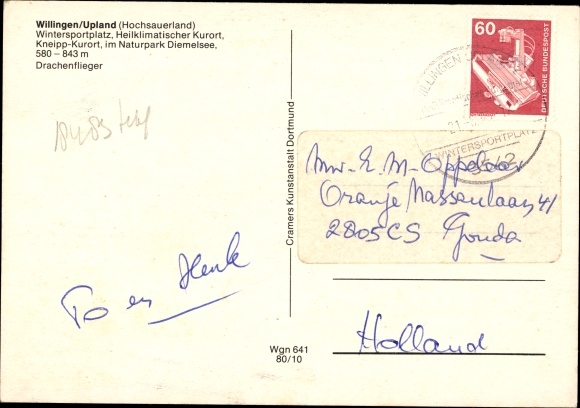 Willingen/Upland (Hochsauerland)
Wintersportplatz, Heilklimatischer Kurort,
Kneipp-Kurort, im Naturpark Diemelsee,
580 – 843 m
Drachenflieger
To en Henk
Cramers Kunstanstalt Dortmund
Wgn 641
80/10
60
DEUTSCHE BUNDESPOST
WILLINGEN
21
WINTERSPORTPLATZ
3542
Mw. E. M. Oppelaar
Oranje Nassaulaan 41
2805CS Gouda
Holland